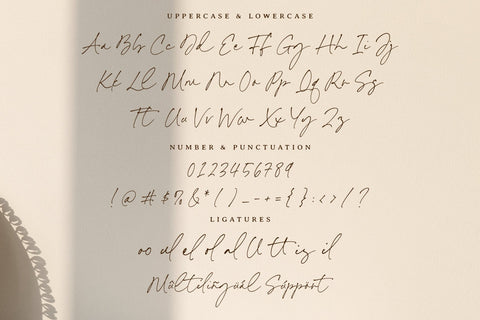 UPPERCASE & LOWERCASE
Aa Bb Cc Dd Ee Ff Gg Hh Ii Jj
Kk Ll Mm Nn Oo Pp Qq Rr Ss
Tt Uu Vv Ww Xx Yy Zz
NUMBER & PUNCTUATION
0123456789
! @ # $ % & * ( ) _ - + = { } : < > / ?
LIGATURES
oo ul el ol al ll tt is il
Multilingual Support